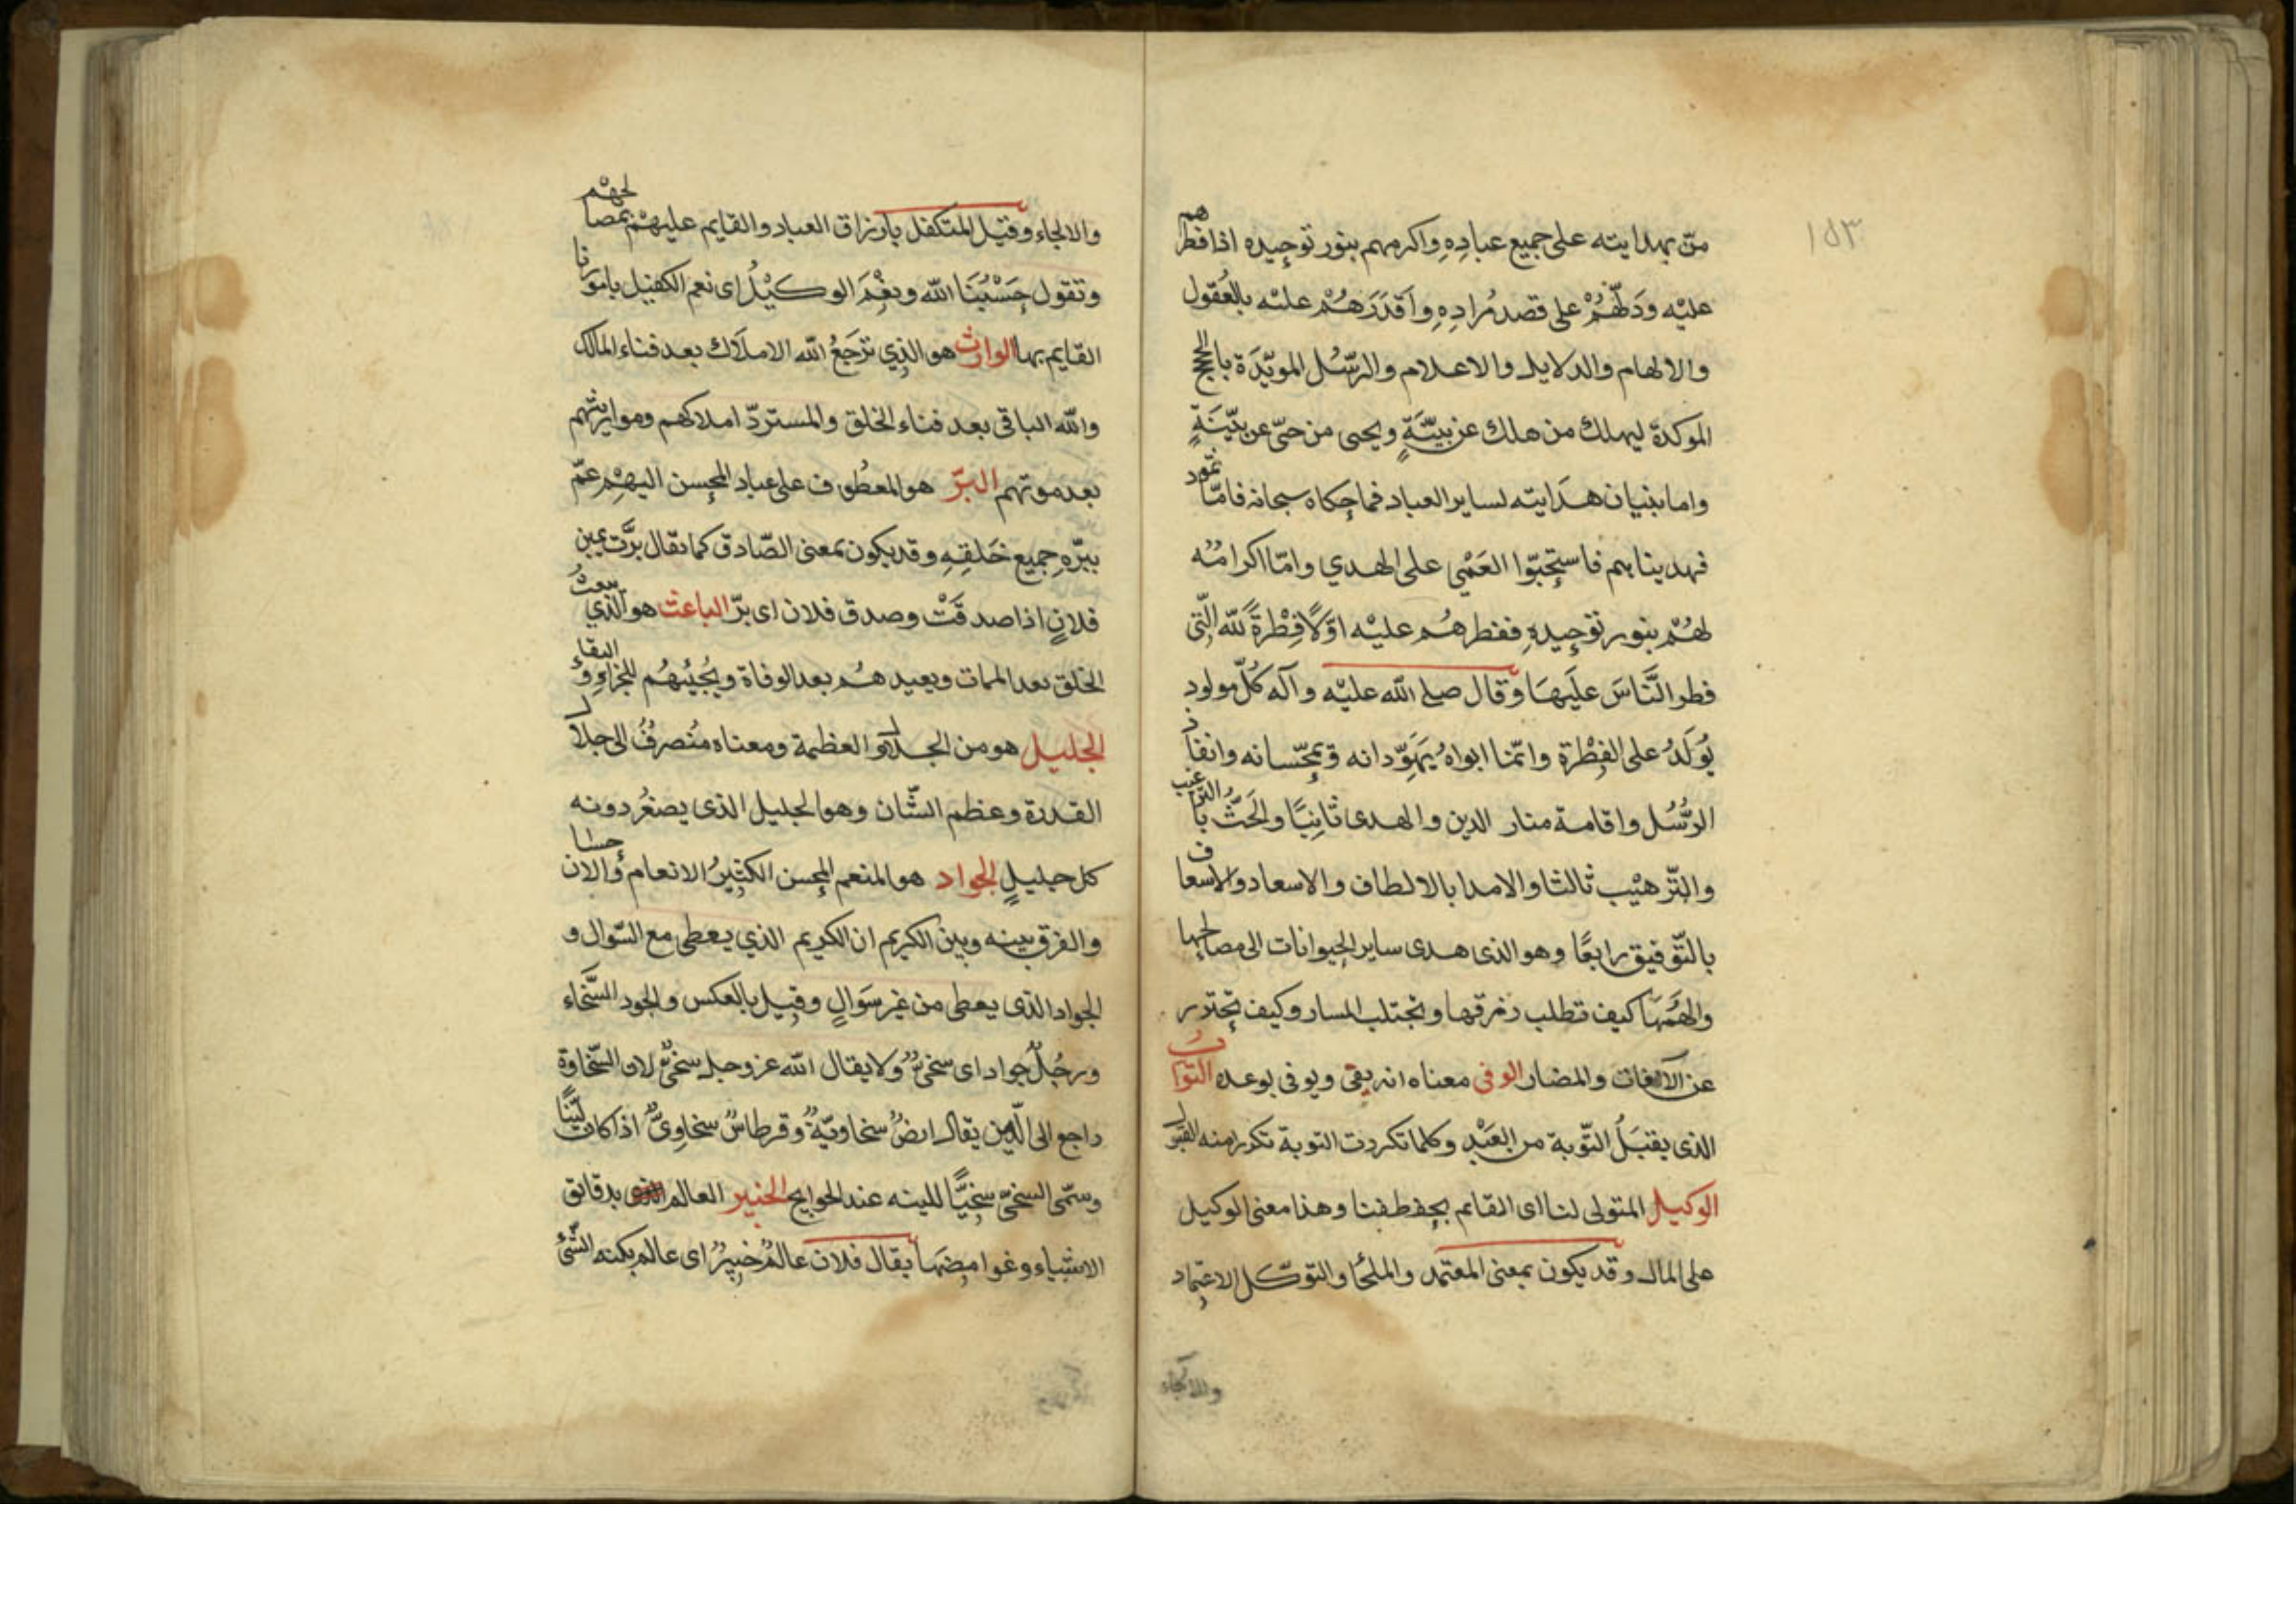 ١٥٣
منّ بهدايته على جميع عبادِهِ واكرمهم بنور توحيده اذ افطرهم
عليْه ودَلّهُمْ على قصد مُرادِهِ واَقدَرَهُمْ عليْه بالعُقول
والالهام والدلايل والاعلام والرّسُل المويّدَة بالحجج
الموكدة ليهلك من هلك عن بيّنَةٍ ويحيى من حىّ عن بيّنَةٍ
واما بنيان هدَايته لساير العباد فما حكاه سبحانه فامّا ثمّود
فهديناهم فاستحبّوا العَمْي على الهدي وامّا اكرامُه
لهُمْ بنور توحيدِهِ ففطرهُم عليْه اوّلًا فِطْرةَ لله الّتى
فطر النَّاسَ علَيهَا وقال صلى الله عليْه وآله كُلّ مولود
يُولَدُ على الفِطْرة وانّما ابواهُ يُهَوِّدانه ويمجّسانه وانفاذ
الرُّسُل واقامة منار الدين والهدى ثَانِيًا والحَثّ بالترغيب
والتّرهيْب ثالثا والامدا بالالطاف والاسعاد والاسعاف
بالتّوفيق رابعًا وهو الذى هدى ساير الحيوانات الى مصالحها
والهَمَهَا كيف تطلب رزقها وتجتلب المسار وكيف تحترز
عن الآفات والمضار الوفى معناه انه يفى ويوفى بوعده التوّاب
الذى يقبَلُ التّوبة من العَبْد وكلما تكررت التوبة تكرر منه القبول
الوكيل المتولى لنا اى القائم بحفظنا وهذا معنى الوكيل
على المال وقد يكون بمعنى المعتمد والملجا والتوكّل الاعتماد
والالجاء
والالجاء وقيل المتكفل بارزاق العباد والقايم عليهمْ بمصالحهمْ
وتقول حَسْبُنَا الله ونِعْمَ الوكيْلُ اى نعم الكفيل بامورنا
القايم بها الوارث هو الذِي ترَجَعُ الله الاملاَك بعد فناء المالك
والله الباقى بعد فناء الخلق والمستردّ املاكهم ومواريثهم
بعد موتهم البَرّ هو المعطُوف على عباد المحسن اليهِمْ عمّ
ببرّهِ جميع خَلقِهِ وقد يكون بمعنى الصّادق كما يقال برَّت يمين
فلانٍ اذا صدقَتْ وصدق فلان اى برّ الباعث هو الّذي يبعث
الخلق بعد الممات ويعيدهُم بعد الوفاة ويُجيُهُم للجزاءِ والبقاء
الجليل هو من الجلال والعظمة ومعناه مُنصرفُ الى جلال
القدرة وعظم الشّان وهو الجليل الذى يصغُر دونه
كل جليلٍ الجواد هو المنعم المحسن الكثيرُ الانعام والاحسان
والفرق بينه وبين الكريم ان الكريم الذي يعطى مع السّوال و
الجواد الذى يعطى من غير سَوَالٍ وقيل بالعكس والجود السّخَاء
ورجُلٌ جواد اى سخىٌ ولا يقال الله عز وجل سخىٌّ لان السّخاوة
راجع الى الّلين يقال ارضٌ سخاويّةٌ وقرطاسٌ سخاوِىٌّ اذا كان ليّنًا
وسمّى السخىّ سخيًّا للينه عند الحوايج الخبير العالم بدقائق
الاشياء وغوامضهَا يقال فلان عالمٌ خبيرٌ اى عالم بكنه الشّئ